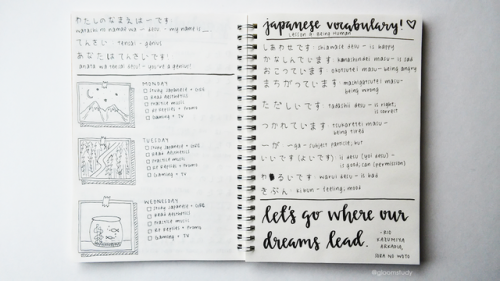 わたしのなまえは ー です.
watashi no namae wa - desu - my name is __
てんさい tensai - genius
あなたはてんさいです!
anata wa tensai desu! - you're a genius!
MONDAY
study Japanese + UGE
read aesthetics
practice music
do replies + promo
gaming + TV
TUESDAY
study Japanese + UGE
read aesthetics
practice music
do replies + promo
gaming + TV
WEDNESDAY
study Japanese + UGE
read aesthetics
practice music
do replies + promo
gaming + TV
japanese vocabulary! ♡
lesson 4: being human
しあわせです shiawase desu - is happy
かなしんでいます kanashindei masu - is sad
おこっています okotteimasu - being angry
まちがっています machigatteimasu -
being wrong
ただしいです tadashii desu - is right;
is correct
つかれています tsukareteimasu -
being tired
ーが -ga - subject particle; but
いいです(よいです) ii desu (yoi desu) -
is good; can (permission)
わるいです warui desu - is bad
きぶん kibun - feeling; mood
let's go where our
dreams lead.
- RIO
KAZUMIYA
ARKADIA,
SORA NO WOTO
@gloomstudy